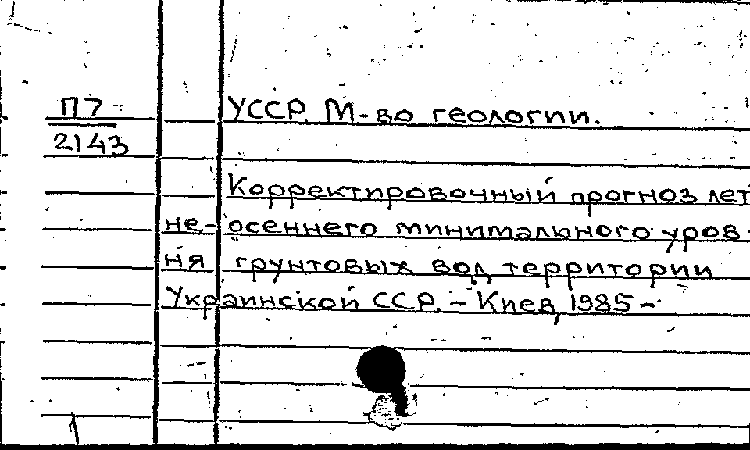 П7
2143
УССР. М-во геологии.
Корректировочный прогноз лет
не-осеннего минимального уров-
ня грунтовых вод территории
Украинской ССР. – Киев, 1985 –